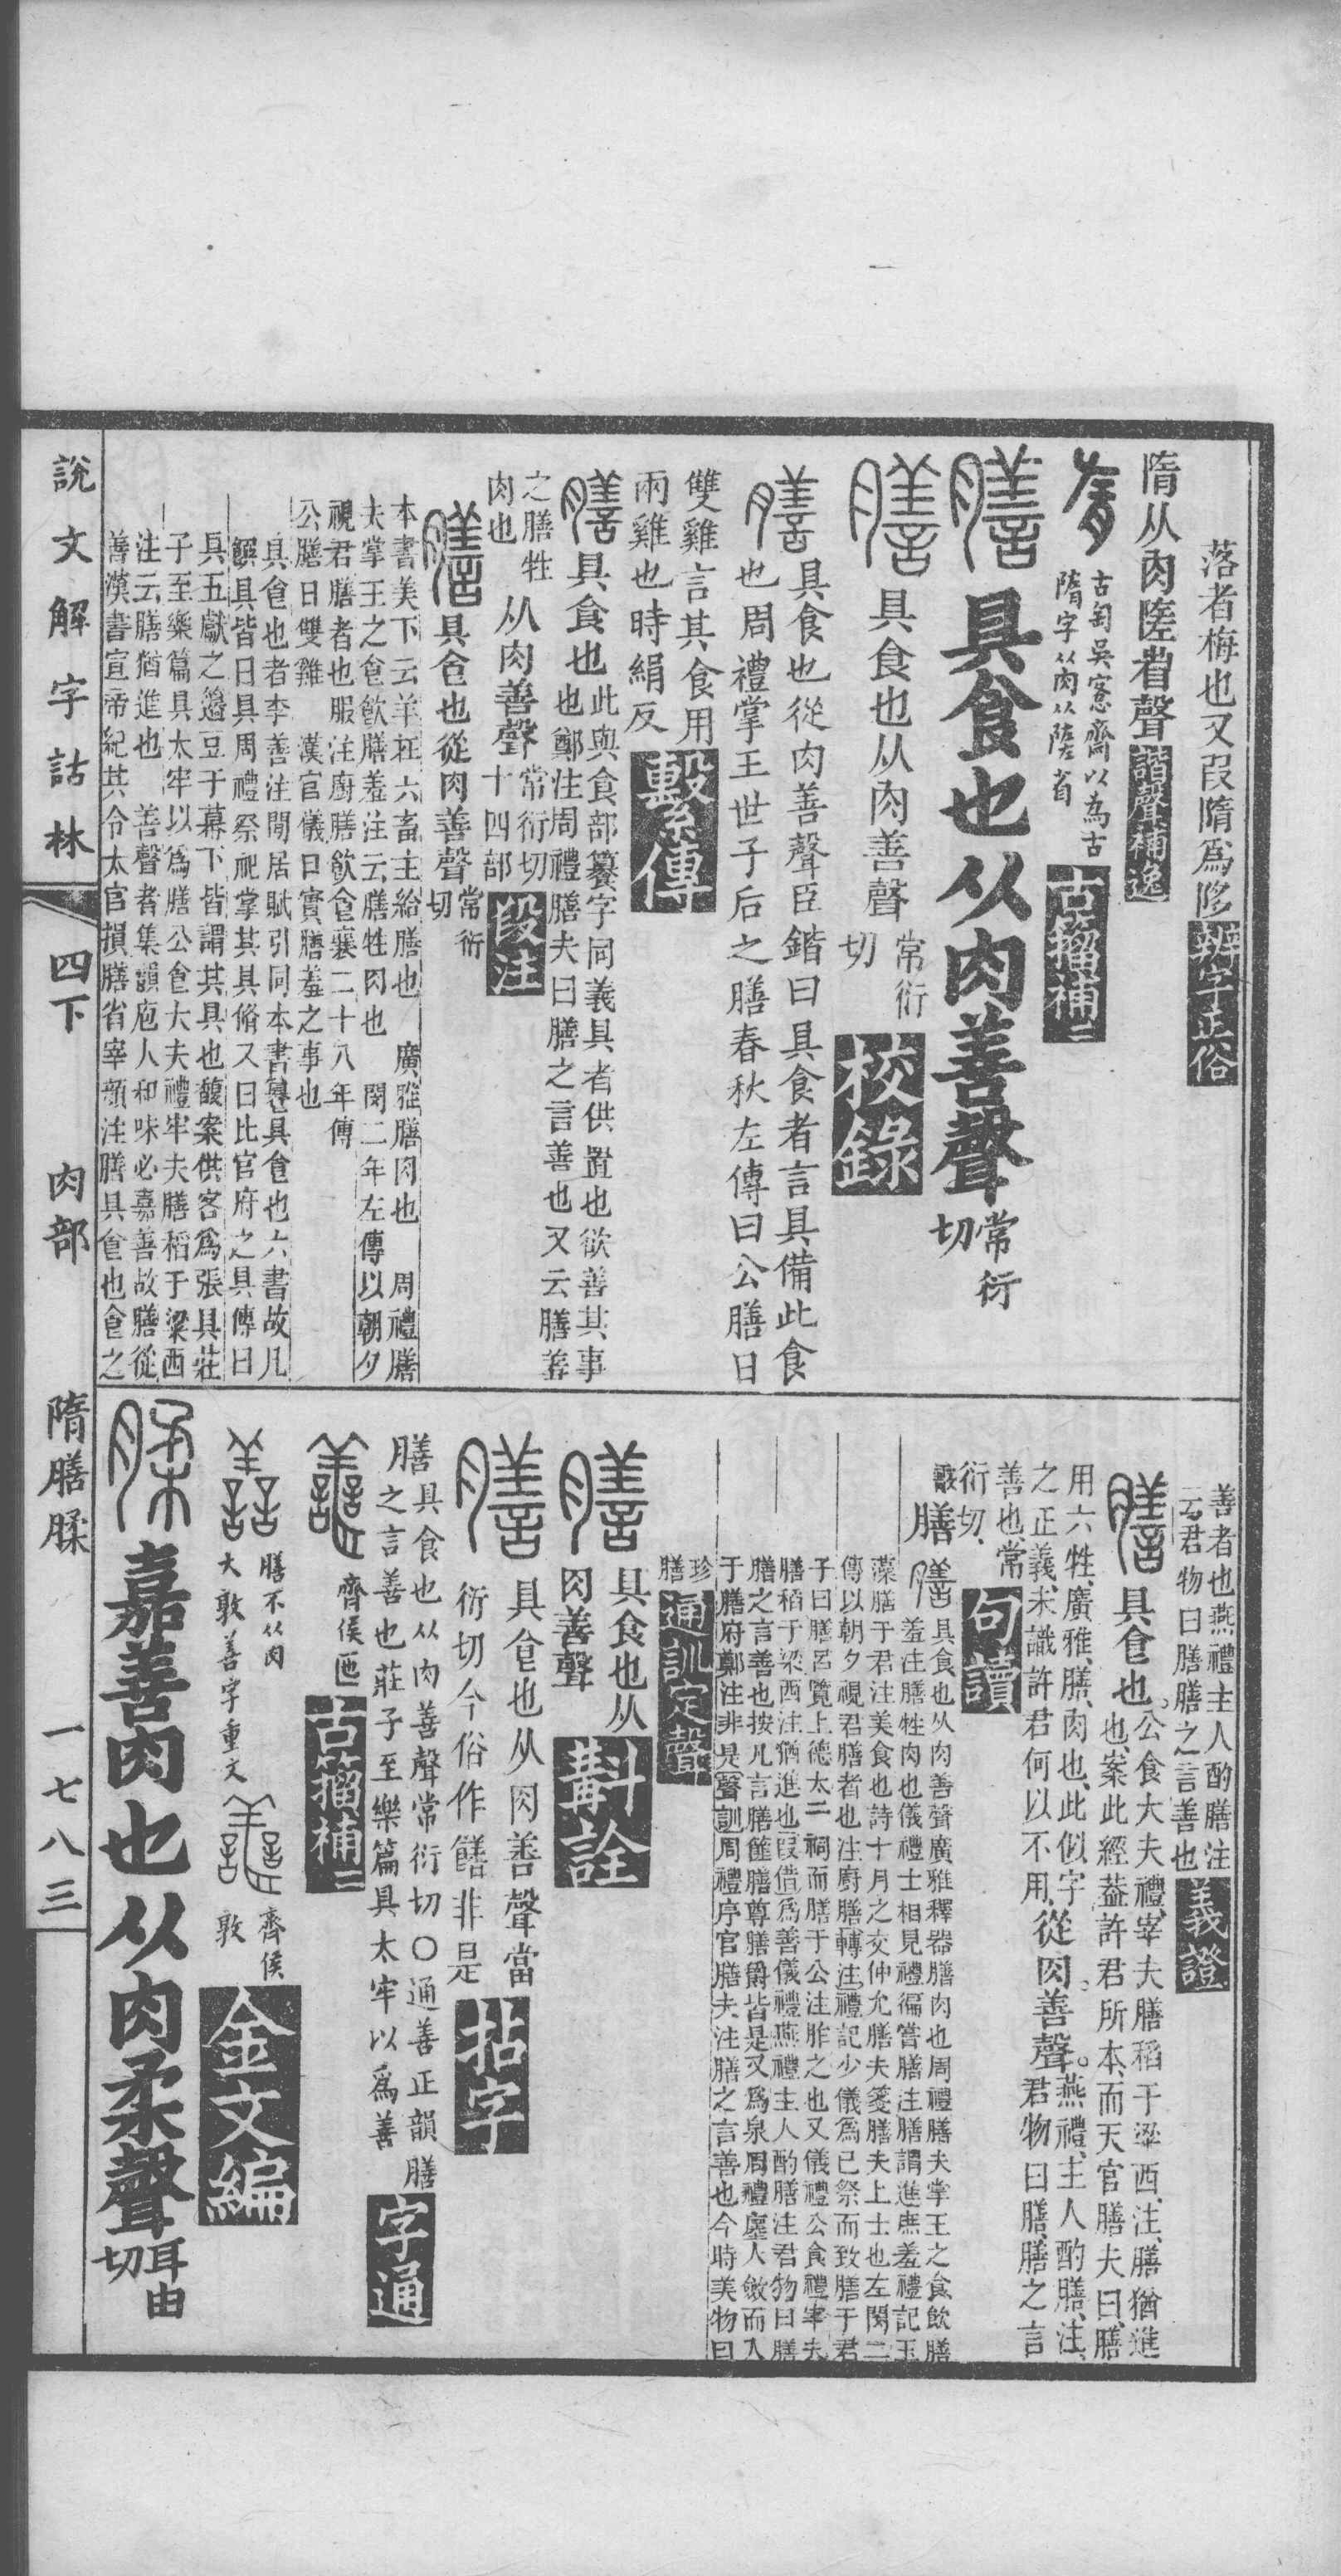 落者梅也又叚隋爲陊辨字正俗
隋从肉隓省聲諧聲補逸
古匋吳愙齋以為古
隋字从肉从陸省
古籀補二
膳具食也从肉善聲常衍
切
膳具食也从肉善聲常衍
切
校錄
膳具食也從肉善聲臣鍇曰具食者言具備此食
也周禮掌王世子后之膳春秋左傳曰公膳日
雙雞言其食用
兩雞也時絹反
繫傳
膳具食也此與食部籑字同義具者供置也欲善其事
也鄭注周禮膳夫曰膳之言善也又云膳羞
之膳牲
肉也
从肉善聲常衍切
十四部
段注
膳具食也從肉善聲常衍
切
本書美下云羊在六畜主給膳也 廣雅膳肉也 周禮膳
夫掌王之食飲膳羞注云膳牲肉也 閔二年左傳以朝夕
視君膳者也服注廚膳飲食襄二十八年傳
公膳日雙雞 漢官儀曰實膳羞之事也
具食也者李善注閒居賦引同本書籑具食也六書故凡
饌具皆曰具周禮祭祀掌其具脩又曰比官府之具傳曰
具五獻之籩豆于幕下皆謂其具也馥案供客爲張具莊
子至樂篇具太牢以爲膳公食大夫禮牢夫膳稻于粱西
注云膳猶進也 善聲者集韻庖人和味必嘉善故膳從
善漢書宣帝紀其令太官損膳省宰顏注膳具食也食之
善者也燕禮主人酌膳注
云君物曰膳膳之言善也
義證
膳具食也。公食大夫禮、宰夫膳稻于粱西、注、膳猶進
也、案此經葢許君所本、而天官膳夫曰、膳
用六牲、廣雅、膳、肉也、此似字
之正義、未識許君何以不用、
從肉善聲。燕禮、主人酌膳、注、
君物曰膳、膳之言
善也、常
衍切、
句讀
膳膳具食也从肉善聲廣雅釋器膳肉也周禮膳夫掌王之食飲膳
羞注膳牲肉也儀禮士相見禮徧嘗膳注膳謂進庶羞禮記玉
藻膳于君注美食也詩十月之交仲允膳夫箋膳夫上士也左閔二
傳以朝夕視君膳者也注廚膳轉注禮記少儀爲已祭而致膳于君
子曰膳呂覽上德太二祠而膳于公注胙之也又儀禮公食禮宰夫
膳稻于粱西注猶進也叚借爲善儀禮燕禮主人酌膳注君物曰膳
膳之言善也按凡言膳篚膳尊膳爵皆是又爲泉周禮廛人斂而入
于膳府鄭注非是聲訓周禮序官膳夫注膳之言善也今時美物曰
珍
膳
通訓定聲
膳具食也从
肉善聲
斠詮
膳具食也从肉善聲當
衍切今俗作饍非是
拈字
膳具食也从肉善聲常衍切〇通善正韻膳
膳之言善也莊子至樂篇具太牢以爲善
字通
齊侯匜
古籀補二
膳不从肉
大敦善字重文
齊侯
敦
金文編
腬嘉善肉也从肉柔聲耳由
切
說文解字詁林 四下 肉部 隋膳腬 一七八三